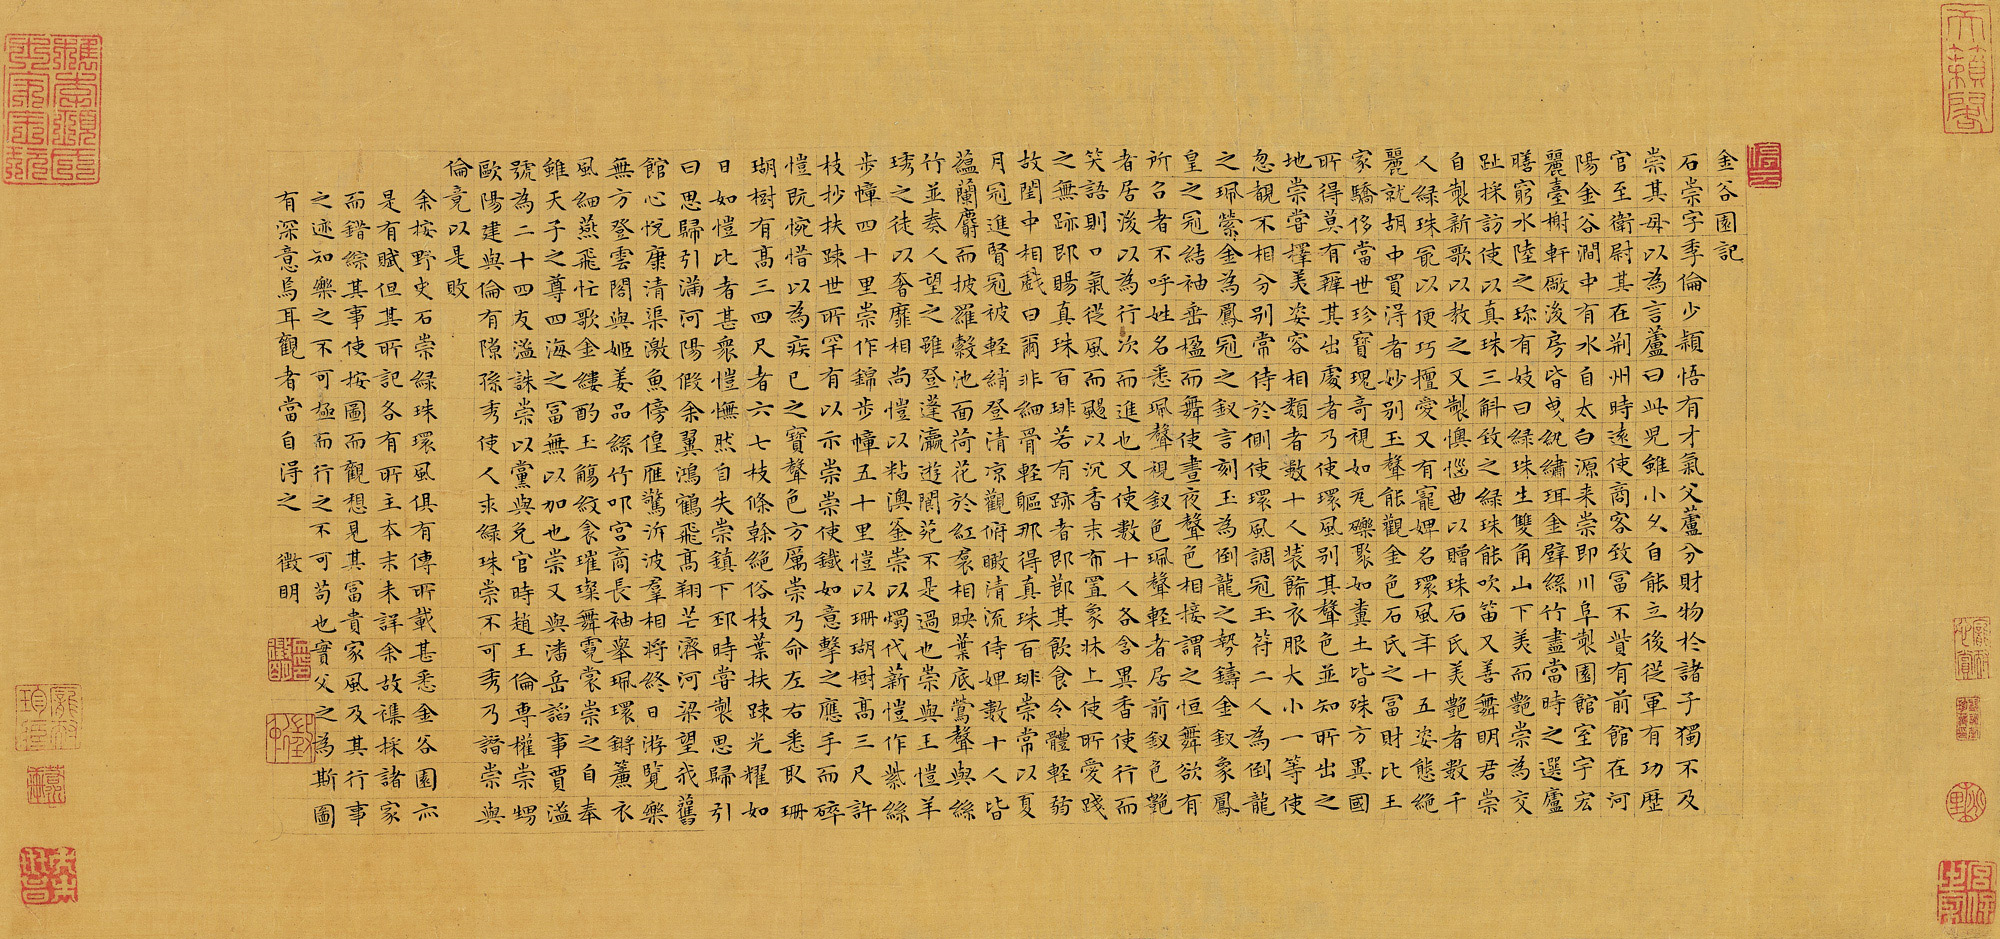 金谷園記
石崇字季倫少穎悟有才氣父蘆分財物於諸子獨不及
崇其母以為言蘆曰此兒雖小久自能立後從軍有功歷
官至衛尉其在荆州時遠使商客致冨不貲有前館在河
陽金谷澗中有水自太白源来崇即川阜製園館室宇宏
麗臺榭軒厰後房皆曳紈繡珥金璧絲竹盡當時之選廬
膳窮水陸之珎有妓曰綠珠生雙角山下美而艷崇為交
趾採訪使以真珠三斛致之綠珠能吹笛又善舞明君崇
自製新歌以教之又製懊惱曲以贈珠石氏美艷者數千
人綠珠寵以便巧擅愛又有寵婢名環風年十五姿態絶
麗就胡中買淂者妙别玉聲能觀金色石氏之冨財比王
家驕侈當世珍寶瑰奇視如瓦礫聚如糞土皆殊方異國
所得莫有辨其出處者乃使環風别其聲色並知所出之
地崇甞擇美姿容相類者數十人装餙衣服大小一等使
忽覩不相分别常侍於側使環風調冠玉符二人為倒龍
之珮縈金為鳳冠之釵言刻玉為倒龍之勢鑄金釵象鳳
皇之冠結袖垂楹而舞使晝夜聲色相接謂之恒舞欲有
所名者不呼姓名悉珮聲視釵色珮聲輕者居前釵色艷
者居後以為行次而進也又使數十人各含異香使行而
笑語則口氣從風而颺以沉香末布置象牀上使所愛踐
之無跡即賜真珠百琲若有跡者即節其飲食令體輕弱
故閨中相戱曰爾非細骨輕軀那得真珠百琲崇常以夏
月冠進賢冠被輕綃登清凉觀俯瞰清流侍婢數十人皆
蕴蘭麝而披羅縠池面荷花於紅裠相映葉底鶯聲與絲
竹並奏人望之雖登蓬瀛遊閬苑不是過也崇與王愷羊
琇之徒以奢靡相尚愷以粘澳釜崇以燭代薪愷作紫絲
步幛四十里崇作錦步幛五十里愷以珊瑚樹高三尺許
枝抄扶踈世所罕有以示崇崇使鐵如意擊之應手而碎
愷既惋惜以為疾已之寶聲色方厲崇乃命左右悉取珊
瑚樹有髙三四尺者六七枝條榦絶俗枝葉扶踈光耀如
日如愷比者甚衆愷憮然自失崇鎮下邳時甞製思歸引
曰思歸引滿河陽假余翼鴻鶴飛髙翔芒濟河梁望我舊
館心悦康清渠激魚傍偟雁驚泝波羣相将終日游覧樂
無方登雲閣與姬姜品絲竹叩宮商長袖舉珮環鏘簫衣
風細燕飛忙歌金縷酌玉觴紋衾璀璨舞霓裳崇之自奉
雖天子之尊四海之冨無以加也崇又與潘岳謟事賈謐
號為二十四友謐誅崇以黨與免官時趙王倫専權崇甥
歐陽建與倫有隙孫秀使人求綠珠崇不可秀乃譖崇與
倫竟以是敗
余按野史石崇綠珠環風俱有傳所載甚悉金谷園亦
是有賦但其所記各有所主夲末未詳余故襍採諸家
而錯綜其事使按圖而觀想見其冨貴家風及其行事
之迹知樂之不可極而行之不可苟也實父之為斯圖
有深意焉耳觀者當自淂之 徵明
天籟閣
停雲